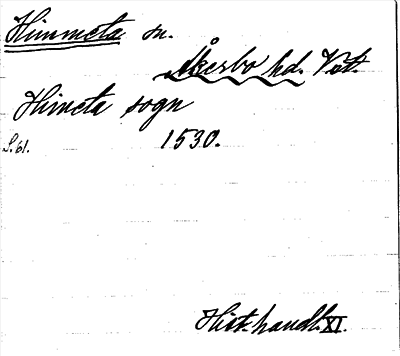 Himmeta sn.
Åkerbo hd. Vstm.
Himeta sogn
S. 61. 1530.
Hist. handl. XI.